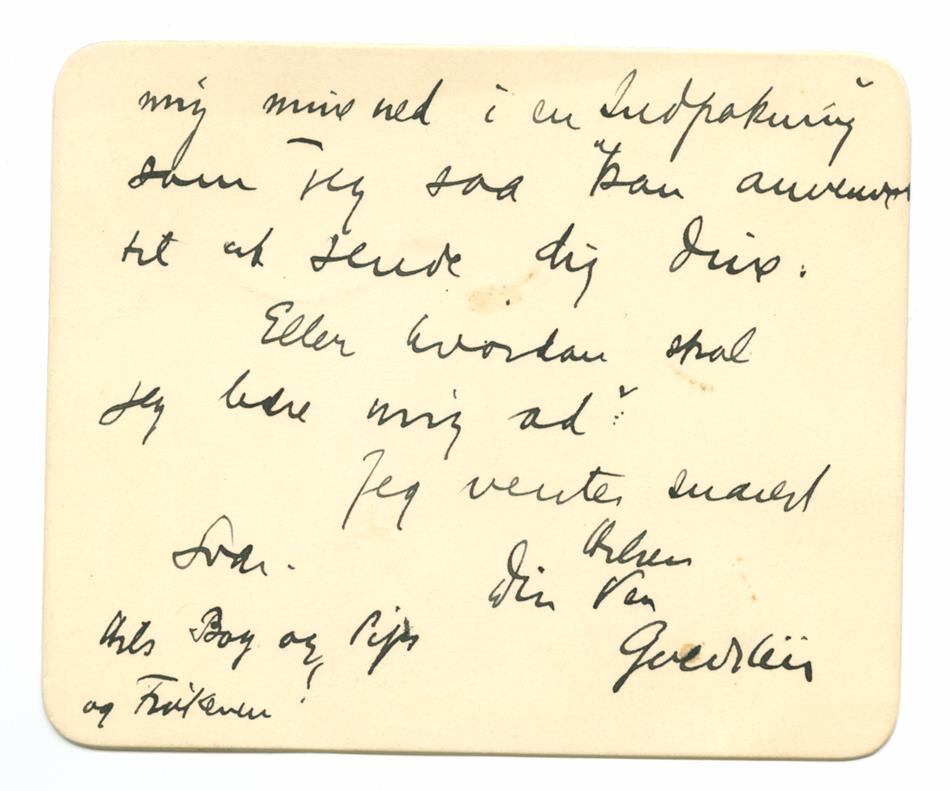 mig mine ned i en Indpakning
som jeg saa kan anvende
til at sende dig Dine.
Eller hvordan skal
jeg bære mig ad?
Jeg venter snarest
Svar. Hilsen
Din Ven
Hils Boy og Pips
og Frøkenen!